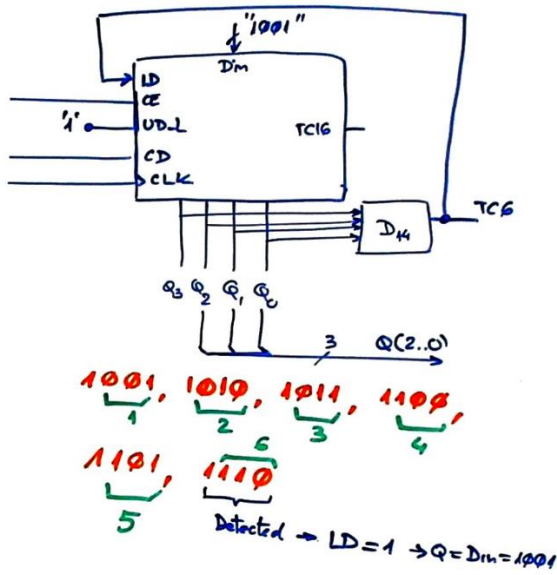 "1001"
Din
LD
CE
"1"
UD_L
TC16
CD
CLK
D14
TC6
Q3 Q2 Q1 Q0
3
Q(2..0)
1001, 1010, 1011, 1100,
1 2 3 4
6
1101, 1110
5
Detected → LD=1 → Q=Din=1001